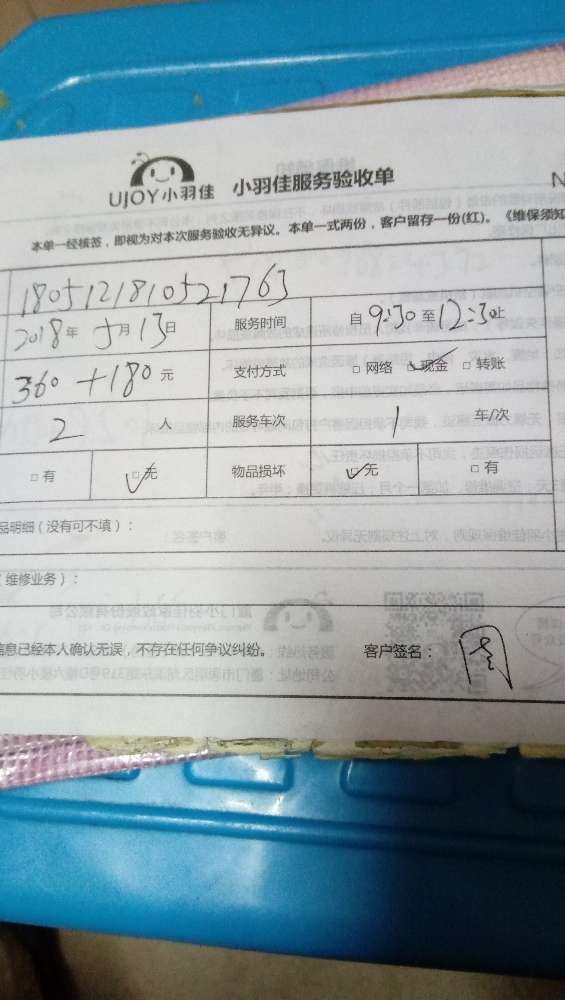 UJOY小羽佳 小羽佳服务验收单
本单一经核签，即视为对本次服务验收无异议。本单一式两份，客户留存一份(红)。《维保须知
180512181052​1763
2018年 5月13日 服务时间 自9:30至12:30止
360+180元 支付方式 □网络 ☑现金 □转账
2 人 服务车次 1 车/次
□有 ☑无 物品损坏 ☑无 □有
品明细（没有可不填）：
（维修业务）：
信息已经本人确认无误，不存在任何争议纠纷。 客户签名：